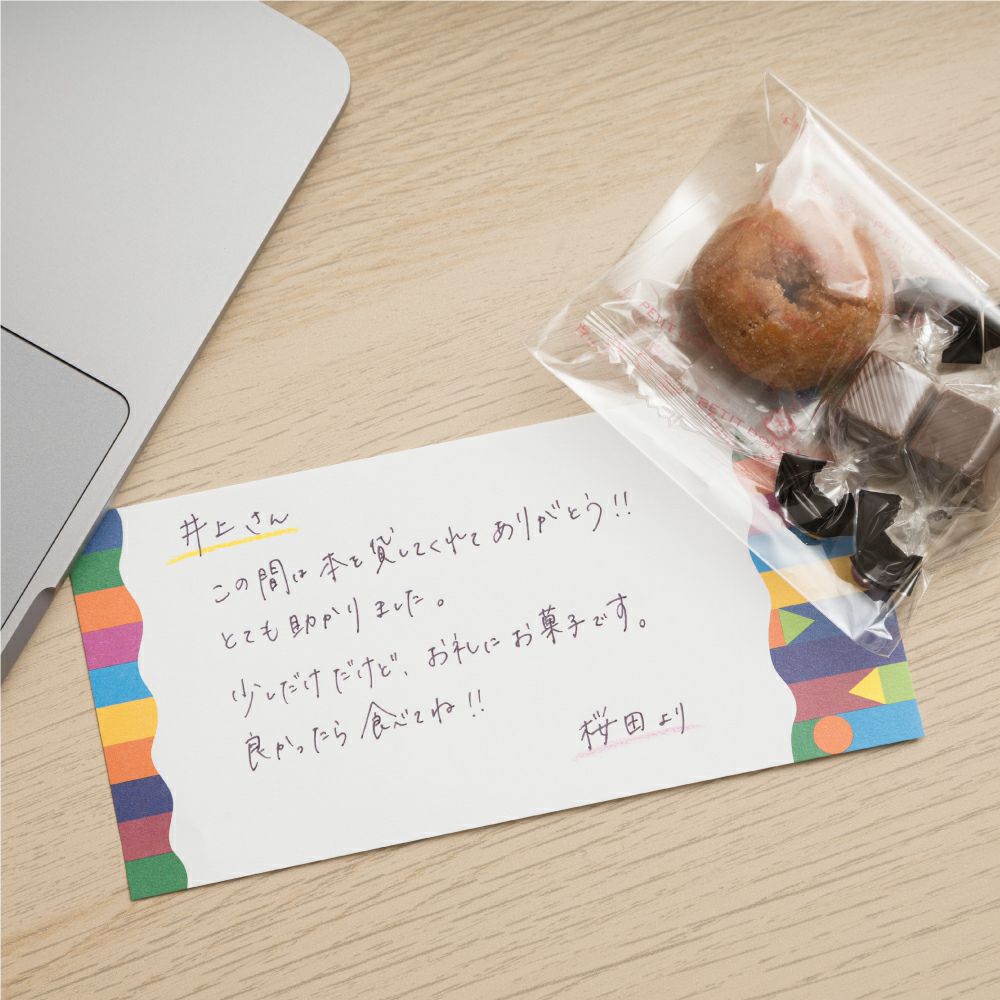 井上さん
この間は本を貸してくれてありがとう!!
とても助かりました。
少しだけだけど、お礼にお菓子です。
良かったら食べてね!!
桜田より
PETIT
PETIT